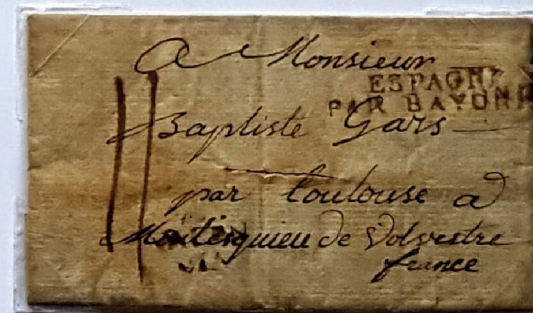 A Monsieur
ESPAGNE
PAR BAYONNE
Baptiste Gars
11
par toulouse a
Montesquieu de Volvestre
france